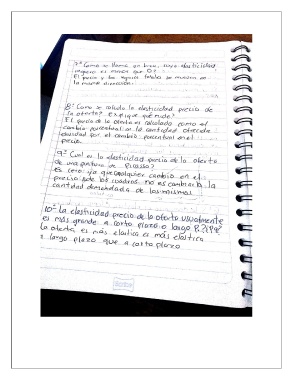 7- Como se llama un bien cuya elasticidad
ingreso es menor que 0?
El precio y los ingresos totales se mueven en
la misma dirección.
8- Como se calcula la elasticidad precio de
la oferta? Explique qué mide?
El precio de la oferta es calculado como el
cambio porcentual en la cantidad ofrecida
dividido por el cambio porcentual en el
precio.
9- Cual es la elasticidad precio de la oferta
de una pintura de Picasso?
Es cero ya que cualquier cambio en el
precio de los cuadros no es cambiaria la
cantidad demandada de los mismos
10- La elasticidad precio de la oferta usualmente
es más grande a corto plazo o largo P.? ¿PQ?
la oferta es más elastica es más elastica
a largo plazo que a corto plazo